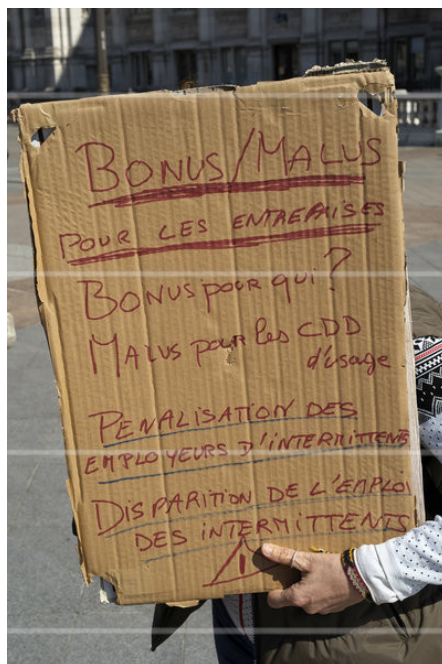 BONUS/MALUS
POUR LES ENTREPRISES
BONUS pour qui ?
MALUS pour les CDD
d'usage.
PENALISATION DES
EMPLOYEURS D'INTERMITTENTS
DISPARITION DE L'EMPLOI
DES INTERMITTENTS
!